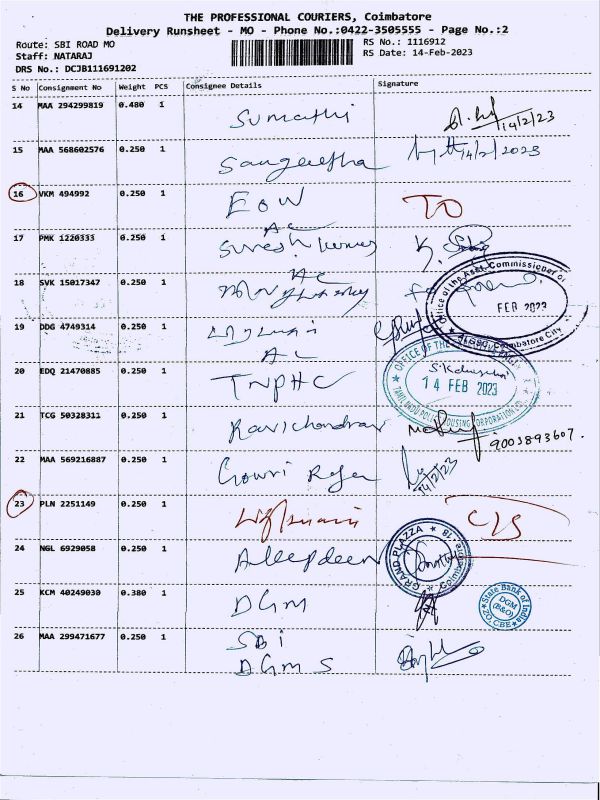 THE PROFESSIONAL COURIERS, Coimbatore
Delivery Runsheet - MO - Phone No.:0422-3505555 - Page No.:2
Route: SBI ROAD MO
RS No.: 1116912
Staff: NATARAJ
RS Date: 14-Feb-2023
DRS No.: DCJB111691202
S No Consignment No Weight PCS Consignee Details Signature
14 MAA 294299819 0.480 1 Sumathi 14/2/23
15 MAA 568602576 0.250 1 Sangeetha 14/2/2023
16 VKM 494992 0.250 1 EOW TO
AC
17 PMK 1220333 0.250 1 Suresh kumar
AC
18 SVK 15017347 0.250 1
Office of the Asst. Commissioner of
FEB 2023
Coimbatore City
19 DDG 4749314 0.250 1
AC
OFFICE OF THE
20 EDQ 21470885 0.250 1 TNPHC
14 FEB 2023
TAMIL NADU POLICE HOUSING CORPORATION
21 TCG 50328311 0.250 1 Ravichandran
9003893607.
22 MAA 569216887 0.250 1 Gowri 14/2/23
23 PLN 2251149 0.250 1 C/S
24 NGL 6929058 0.250 1
GRAND PLAZZA
Coimbatore - 18
25 KCM 40249030 0.380 1 DGM
State Bank of India
DGM
(B&O)
ZO, CBE
26 MAA 299471677 0.250 1 SBI
DGM S